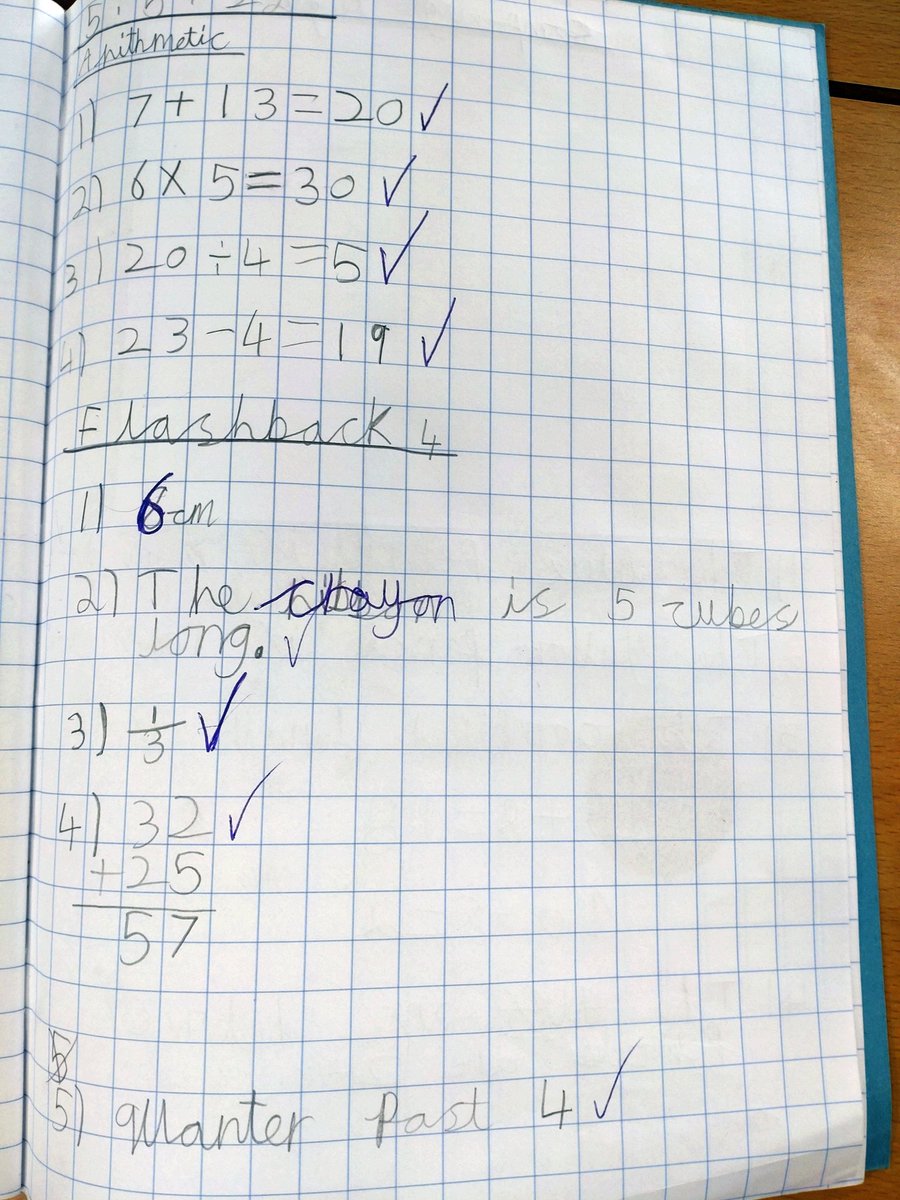 5.5.22
Arithmetic
1) 7 + 13 = 20 ✓
2) 6 × 5 = 30 ✓
3) 20 ÷ 4 = 5 ✓
4) 23 - 4 = 19 ✓
Flashback 4
1) 6cm
2) The is 5 cubes
long. ✓
3) 1/3 ✓
4) 32 ✓
+25
57
5
5) Quanter Past 4 ✓